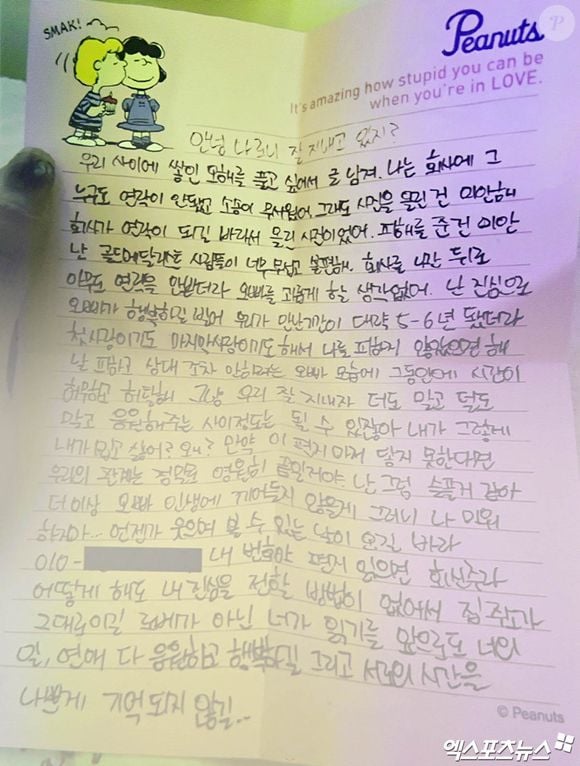 SMAK!
Peanuts
P
It's amazing how stupid you can be
when you're in LOVE.
안녕 나 론이 잘 지내고 있지?
우리 사이에 쌓인 오해를 풀고 싶어서 글 남겨. 나는 회사에 그
누구도 연락이 안됐고 소송이 무서웠어 그래도 사진을 올린 건 미안해
회사가 연락이 되길 바라서 올린 사진이었어. 피해를 준건 미안
난 골드메달리스트 사람들이 너무 무섭고 불편해. 회사를 나간 뒤로
아무도 연락을 안받더라 오빠를 괴롭게 할 생각 없어. 난 진심으로
오빠가 행복하길 빌어 우리가 만난기간이 대략 5-6년 됐더라
첫사랑이기도 마지막사랑이기도 해서 나를 피하지 않았으면 해
날 피하고 상대 조차 안하려는 오빠 모습에 그동안에 시간이
허무하고 허탈해 그냥 우리 잘 지내자 더도 말고 덜도
말고 응원해주는 사이정도는 될 수 있잖아 내가 그렇게
내가 밉고 싫어? 왜? 만약 이 편지마저 닿지 못한다면
우리의 관계는 정말로 영원히 끝일거야 난 그럼 슬플거 같아
더이상 오빠 인생에 끼어들지 않을게 그러니 나 미워
하지마... 언젠가 웃으며 볼 수 있는 날이 오길 바라
010- 내 번호야 편지 읽으면 회신주라
어떻게 해도 내 진심을 전할 방법이 없어서 집 주소가
그대로이길 로베가 아닌 너가 읽기를 앞으로도 너의
일, 연애 다 응원하고 행복하길 그리고 서로의 시간을
나쁘게 기억되지 않길..
© Peanuts
엑스포츠뉴스